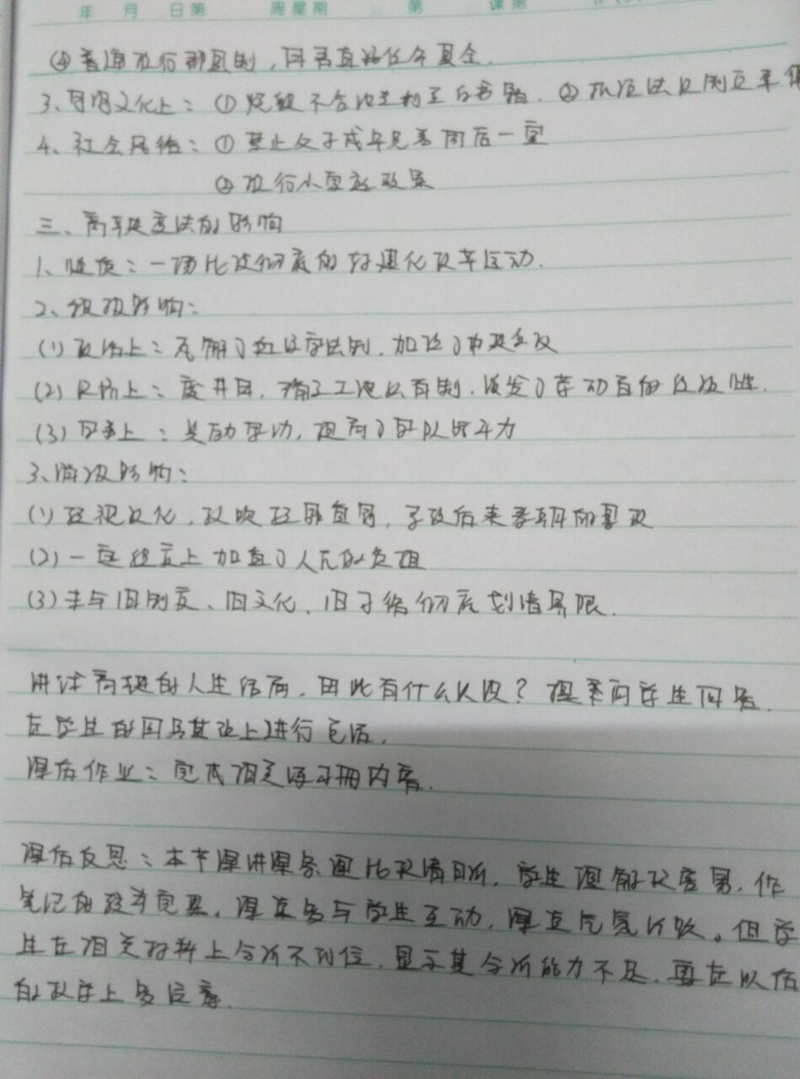 年 月 日第 周星期 第 课第
④普遍推行郡县制，国君直接任命县令.
3、思想文化上：①燔 不合法 ②
4、社会风俗：①禁止父子成年兄弟同居一室
②推行小家庭政策
三、商鞅变法的影响
1、性质：一场比较彻底的封建化改革运动.
2、积极影响：
(1)政治上：瓦解了 宗法制，加强了中央集权
(2)经济上：废井田，确立土地私有制，激发了劳动者的积极性.
(3)军事上：奖励军功，提高了军队战斗力
3、消极影响：
(1)轻视文化，导致后来秦朝的暴政
(2)一定程度上加重了人民的负担
(3)未与旧制度、旧文化、旧习俗彻底划清界限.
讲述商鞅的人生结局，因此有什么认识？提示同学生回答.
在学生的回答基础上进行总结.
课后作业：完成相关练习册内容.
课后反思：本节课讲课条理比较清晰，学生理解较容易，作
笔记的效率更高，课堂多与学生互动，课堂气氛活跃。但学
生在相关材料上分析不到位，显示其分析能力不足，要在以后
的教学上多注意.